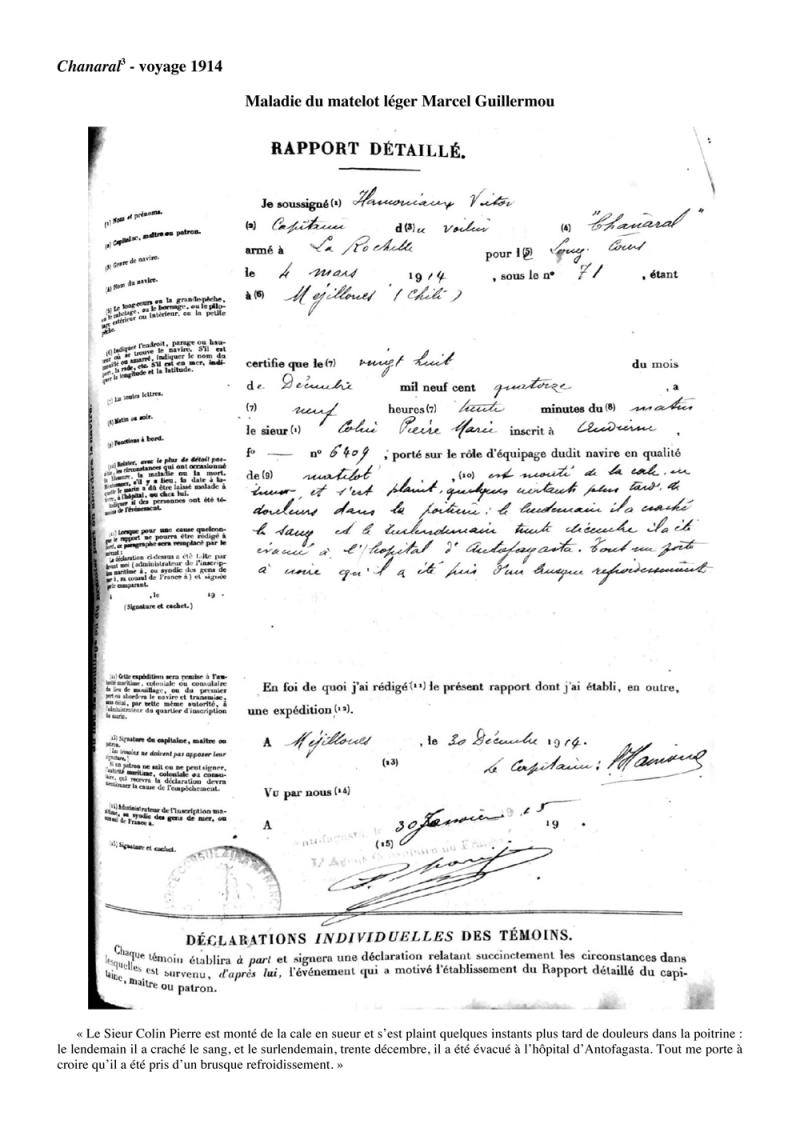 Chanaral³ - voyage 1914
Maladie du matelot léger Marcel Guillermou
RAPPORT DÉTAILLÉ.
Je soussigné (1) Hamoniaux Victor
(2) Capitaine d(3)u voilier (4) "Chanaral"
armé à La Rochelle pour l (5) Long Cours
le 4 mars 1914, sous le n° 71, étant
à (6) Méjillones (Chili)
certifie que le (7) vingt huit du mois
de Décembre mil neuf cent quatorze, a
(7) neuf heures (7) trente minutes du (8) matin
le sieur (1) Colin Pierre Marie inscrit à Audierne,
f° — n° 6409, porté sur le rôle d'équipage dudit navire en qualité
de (9) matelot, (10) est monté de la cale en
sueur, et s'est plaint, quelques instants plus tard, de
douleurs dans la poitrine : le lendemain il a craché
le sang et le surlendemain trente décembre il a été
évacué à l'hopital d'Antofagasta. Tout me porte
à croire qu'il a été pris d'un brusque refroidissement
En foi de quoi j'ai rédigé (11) le présent rapport dont j'ai établi, en outre,
une expédition (12).
A Méjillones, le 30 Décembre 1914.
(13) Le Capitaine : VHamoniaux
Vu par nous (14)
A 30 Janvier 1915 19 .
Antofagasta, le
(15) L'Agent Consulaire de France
(1) Nom et prénoms.
(2) Capitaine, maître ou patron.
(3) Genre de navire.
(4) Nom du navire.
(5) Le long-cours ou la grande-pêche,
ou le cabotage, ou le bornage, ou le pilo-
tage extérieur ou intérieur, ou la petite
pêche.
(6) Indiquer l'endroit, parage ou hau-
teur où se trouve le navire. S'il est
mouillé ou amarré, indiquer le nom du
port, la rade, etc. S'il est en mer, indi-
quer la longitude et la latitude.
(7) En toutes lettres.
(8) Matin ou soir.
(9) Fonctions à bord.
(10) Relater, avec le plus de détail pos-
sible, les circonstances qui ont occasionné
la blessure, la maladie ou la mort.
Mentionner, s'il y a lieu, la date à la-
quelle le marin a dû être laissé malade à
terre, à l'hôpital, ou chez lui.
Indiquer si des personnes ont été té-
moins de l'événement.
(11) Lorsque pour une cause quelcon-
que le rapport ne pourra être rédigé à
bord, ce paragraphe sera remplacé par le
suivant :
La déclaration ci-dessus a été faite par
devant moi (administrateur de l'inscrip-
tion maritime à, ou syndic des gens de
mer à, ou consul de France à) et signée
par le comparant.
A , le 19 .
(Signature et cachet.)
(12) Cette expédition sera remise à l'au-
torité maritime, coloniale ou consulaire
du lieu de mouillage, ou du premier
port où abordera le navire et transmise,
sans délai, par cette même autorité, à
l'administrateur du quartier d'inscription
du marin.
(13) Signature du capitaine, maître ou
patron.
Les témoins ne doivent pas apposer leur
signature.
Si un patron ne sait ou ne peut signer,
l'autorité maritime, coloniale ou consu-
laire, qui recevra la déclaration devra
mentionner la cause de l'empêchement.
(14) Administrateur de l'inscription ma-
ritime, ou syndic des gens de mer, ou
consul de France à.
(15) Signature et cachet.
DÉCLARATIONS INDIVIDUELLES DES TÉMOINS.
Chaque témoin établira à part et signera une déclaration relatant succinctement les circonstances dans
lesquelles est survenu, d'après lui, l'événement qui a motivé l'établissement du Rapport détaillé du capi-
taine, maître ou patron.
« Le Sieur Colin Pierre est monté de la cale en sueur et s'est plaint quelques instants plus tard de douleurs dans la poitrine :
le lendemain il a craché le sang, et le surlendemain, trente décembre, il a été évacué à l'hôpital d'Antofagasta. Tout me porte à
croire qu'il a été pris d'un brusque refroidissement. »